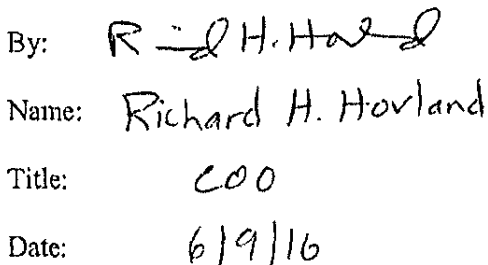 By: R H. Hovland
Name: Richard H. Hovland
Title: COO
Date: 6/9/16